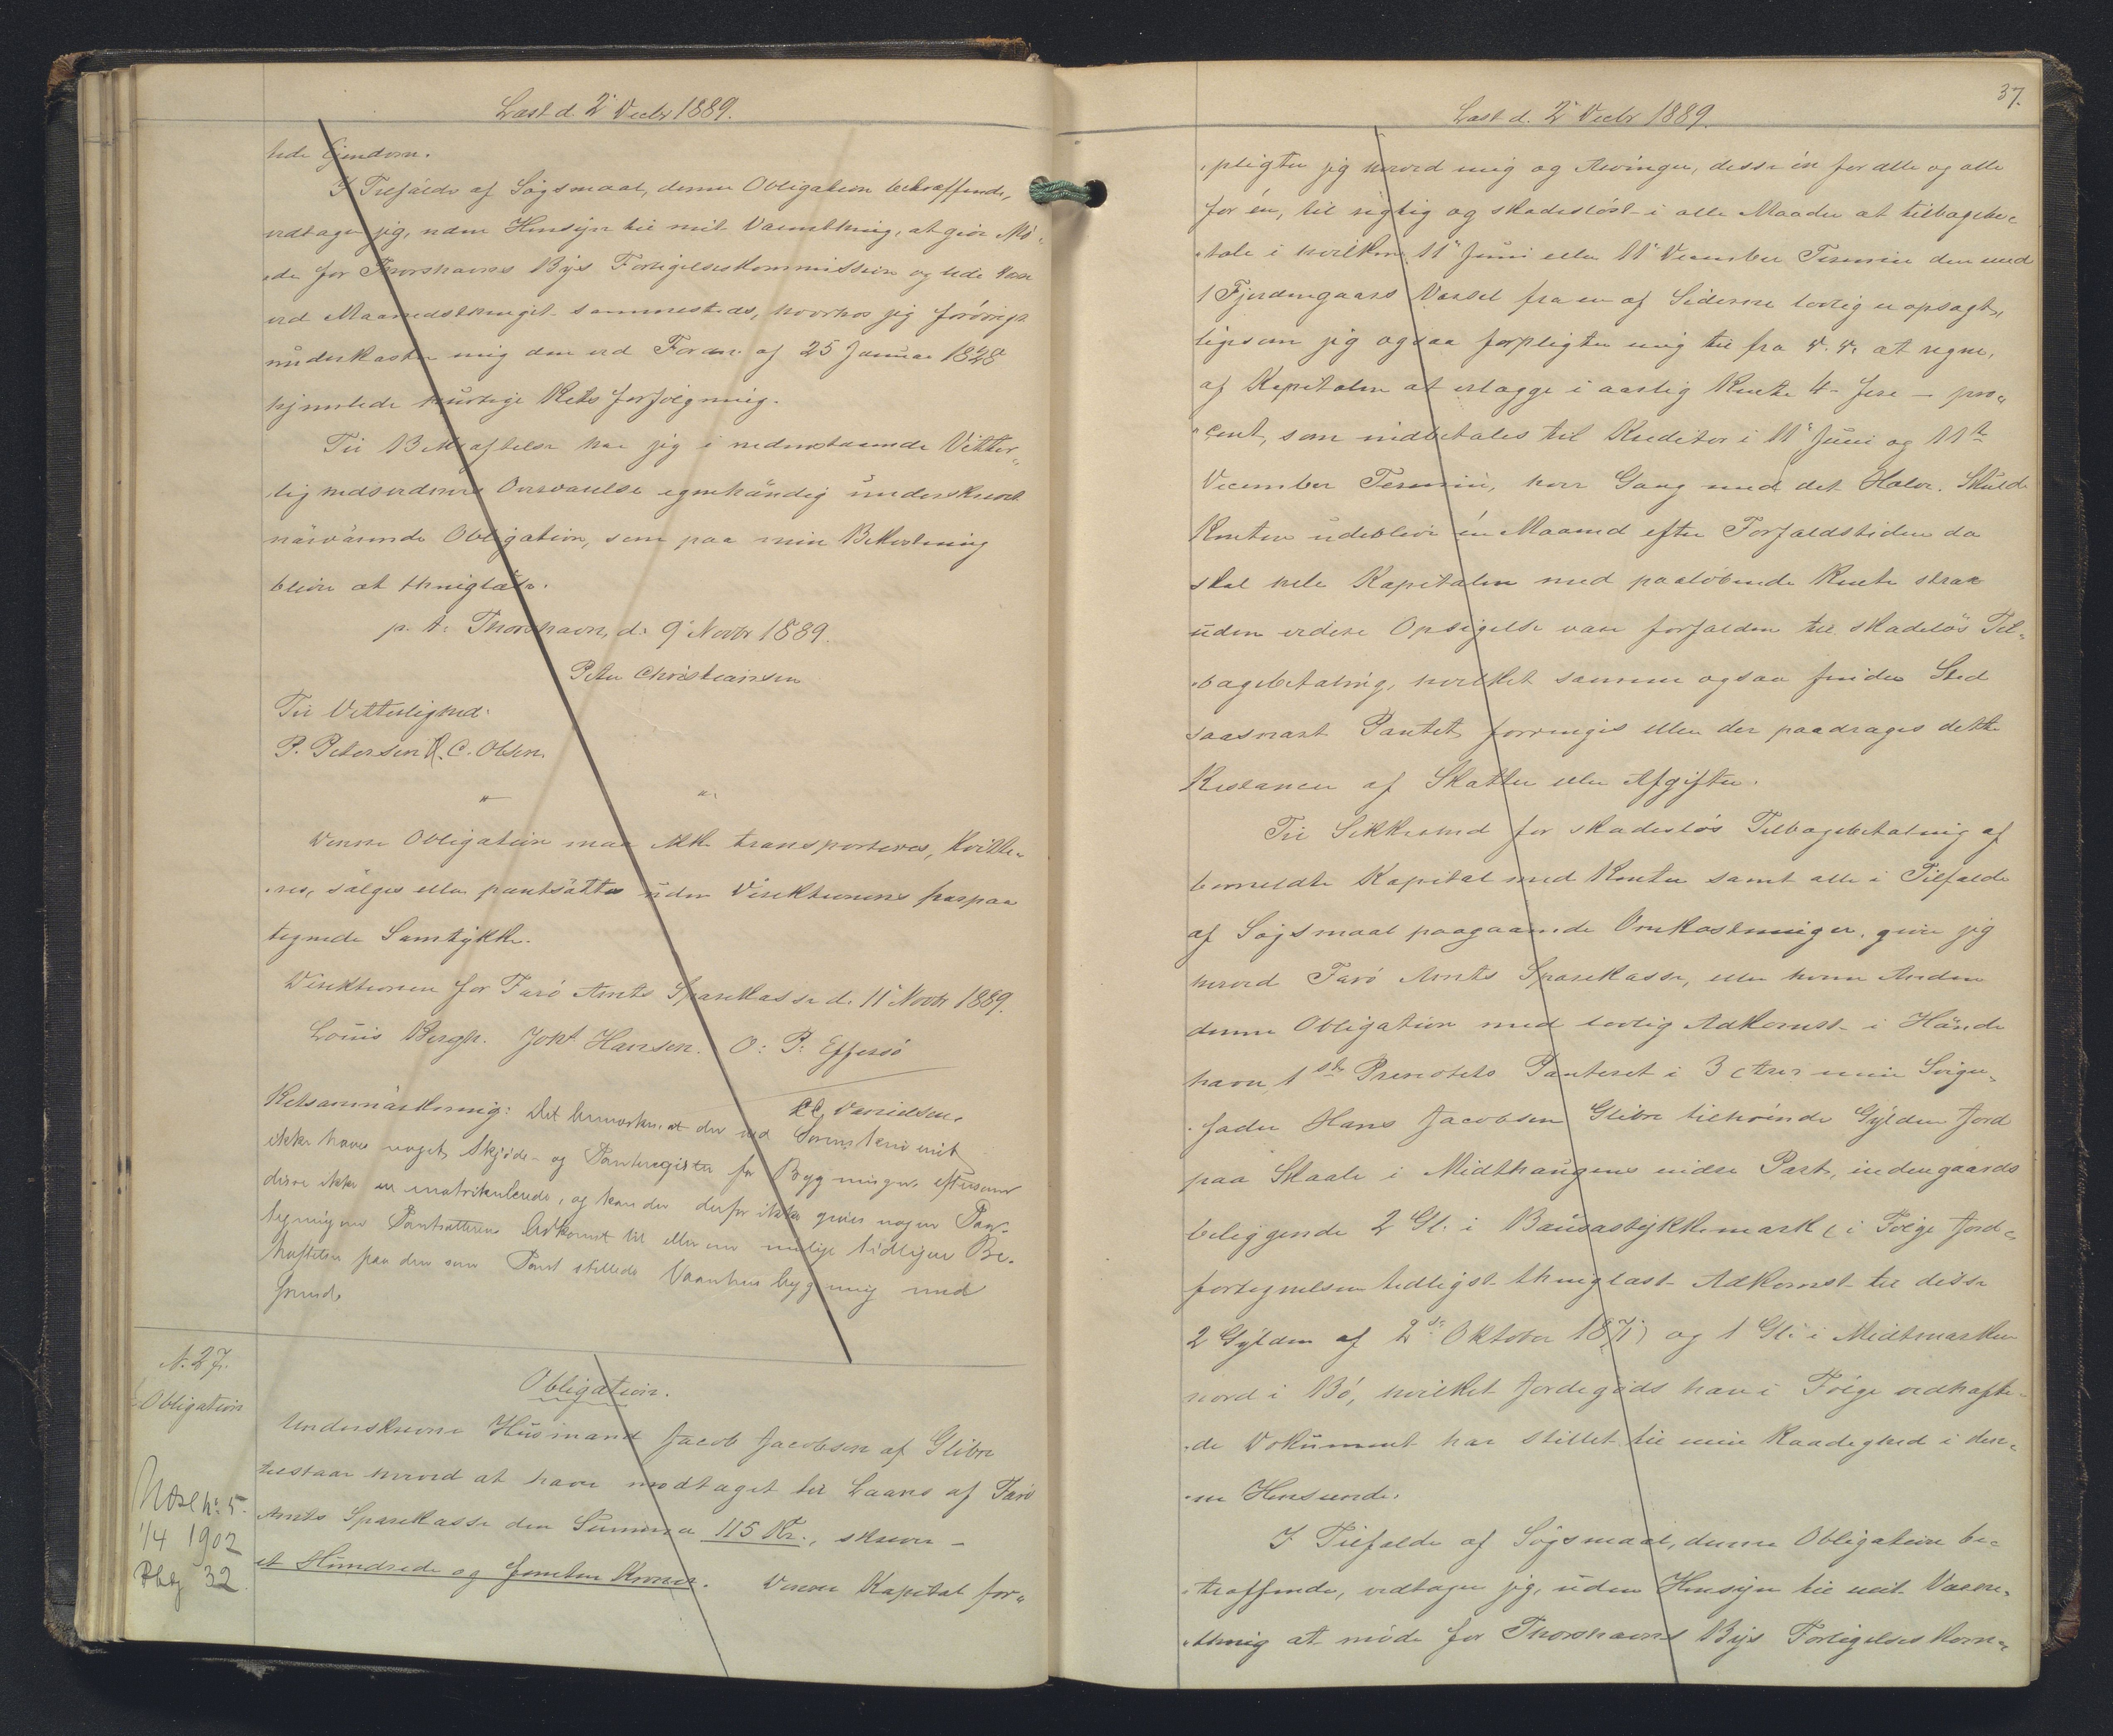 Læst d. 2' Decbr 1889.
tede Ejendom.
I Tilfælde af Søgsmaal, denne Obligation betræffende,
vedtager jeg, uden Hensyn til mit Værnething, at give Mö-
de for Thorshavns Byes Forligelseskommission og lide Dom
ved Maanedsthinget sammesteds, hvorhos jeg forøvrigt
underkaster mig den ved Fordn. af 25 Januar 1828
hjemlede hurtige Retsforfølgning.
Til Bekræftelse har jeg i nedenstaaende Vitter„
lighedsvidners Overværelse egenhändig underskrevet
närvärende Obligation, som paa min Bekostning
bliver at thinglæse.
p. t. Thorshavn, d. 9' Novbr 1889.
Peter Christiansen
Til Vitterlighed:
P. Petersen R. C. Olsen.
" "
Denne Obligation maa ikke transporteres, kvitte„
res, sälges eller pantsättes uden Direktionens herpaa
tegnede Samtykke.
Direktionen for Färö Amts Sparekasse d. 11' Novbr 1889.
Louis Bergh. Jokt Hansen. O: P: Effersö
C. Danielsen.
Retsanmärkning: Det bemærkes, at der ved Sorenskriveriet
ikke haves noget Skjöde- og Panteregister for Bygninger, eftersom
disse ikke er matrikulerede, og kan der derfor ikke gives nogen Paa-
tegning om Pantsætterens Adkomst til eller om mulige tidligere Be-
hæftelser paa den som Pant stillede Vaanhusbygning med
Grund.
N. 27.
Obligation
Obligation.
Underskrevne Husmand Jacob Jacobsen af Glibre
tilstaar herved at have modtaget til Laans af Färö
Amts Sparekasse den Summa 115 Kr., skriver -
et Hundrede og femten Kroner. Denne Kapital for„
1/4 1902
32.
37.
Læst d. 2' Decbr 1889.
„pligter jeg herved mig og Arvinger, disse én for alle og alle
for én, til rigtig og skadesløst i alle Maader at tilbagebe„
„tale i hvilken 11' Juni eller 11' December Termin den med
1 Fjerdingaars Varsel fra en af Siderne lovlig er opsagt,
ligesom jeg ogsaa forpligter mig til fra d. d. at regne,
af Kapitalen at erlägge i aarlig Rente 4 - fire - pro„
„cent, som indbetales til Kreditor i 11' Juni og 11te
December Termin, hver Gang med det Halve. Skulde
Renten udeblive én Maaned efter Forfaldstiden da
skal hele Kapitalen med paaløbende Rente strax
uden videre Opsigelse være forfalden til skadeslös Til„
„bagebetaling, hvilket samme ogsaa finder Sted
saasnart Pantet forringes eller der paadrages dette
Restancer af Skatter eller Afgifter.
Til Sikkerhed for skadeslös Tilbagebetaling af
bemeldte Kapital med Renter samt alle i Tilfælde
af Søgsmaal paagaaende Omkostninger, giver jeg
herved Färö Amts Sparekasse, eller hvem Anden
denne Obligation med lovlig Adkomst i Hände
haver, 1ste Prioritets Panteret i 3 tre min Sviger„
„fader Hans Jacobsen Glibre tilhørende Gylden Jord
paa Skaale i Midthaugens nidre Part, indengaards
beliggende 2 Gl. i Bausastykkemark (i Følge Jord„
fortegnelsen tidligst thinglæst Adkomst til disse
2 Gylden af 2de Oktober 1871) og 1 Gl. i Midtmarken
nord i Bö, hvilket Jordegods han i Følge vedhæfte„
„de Dokument har stillet til min Raadighed i den„
„ne Henseende.
I Tilfælde af Søgsmaal, denne Obligation be„
„træffende, vedtager jeg, uden Hensyn til mit Værne„
„thing at møde for Thorshavns Byes Forligelseskom„